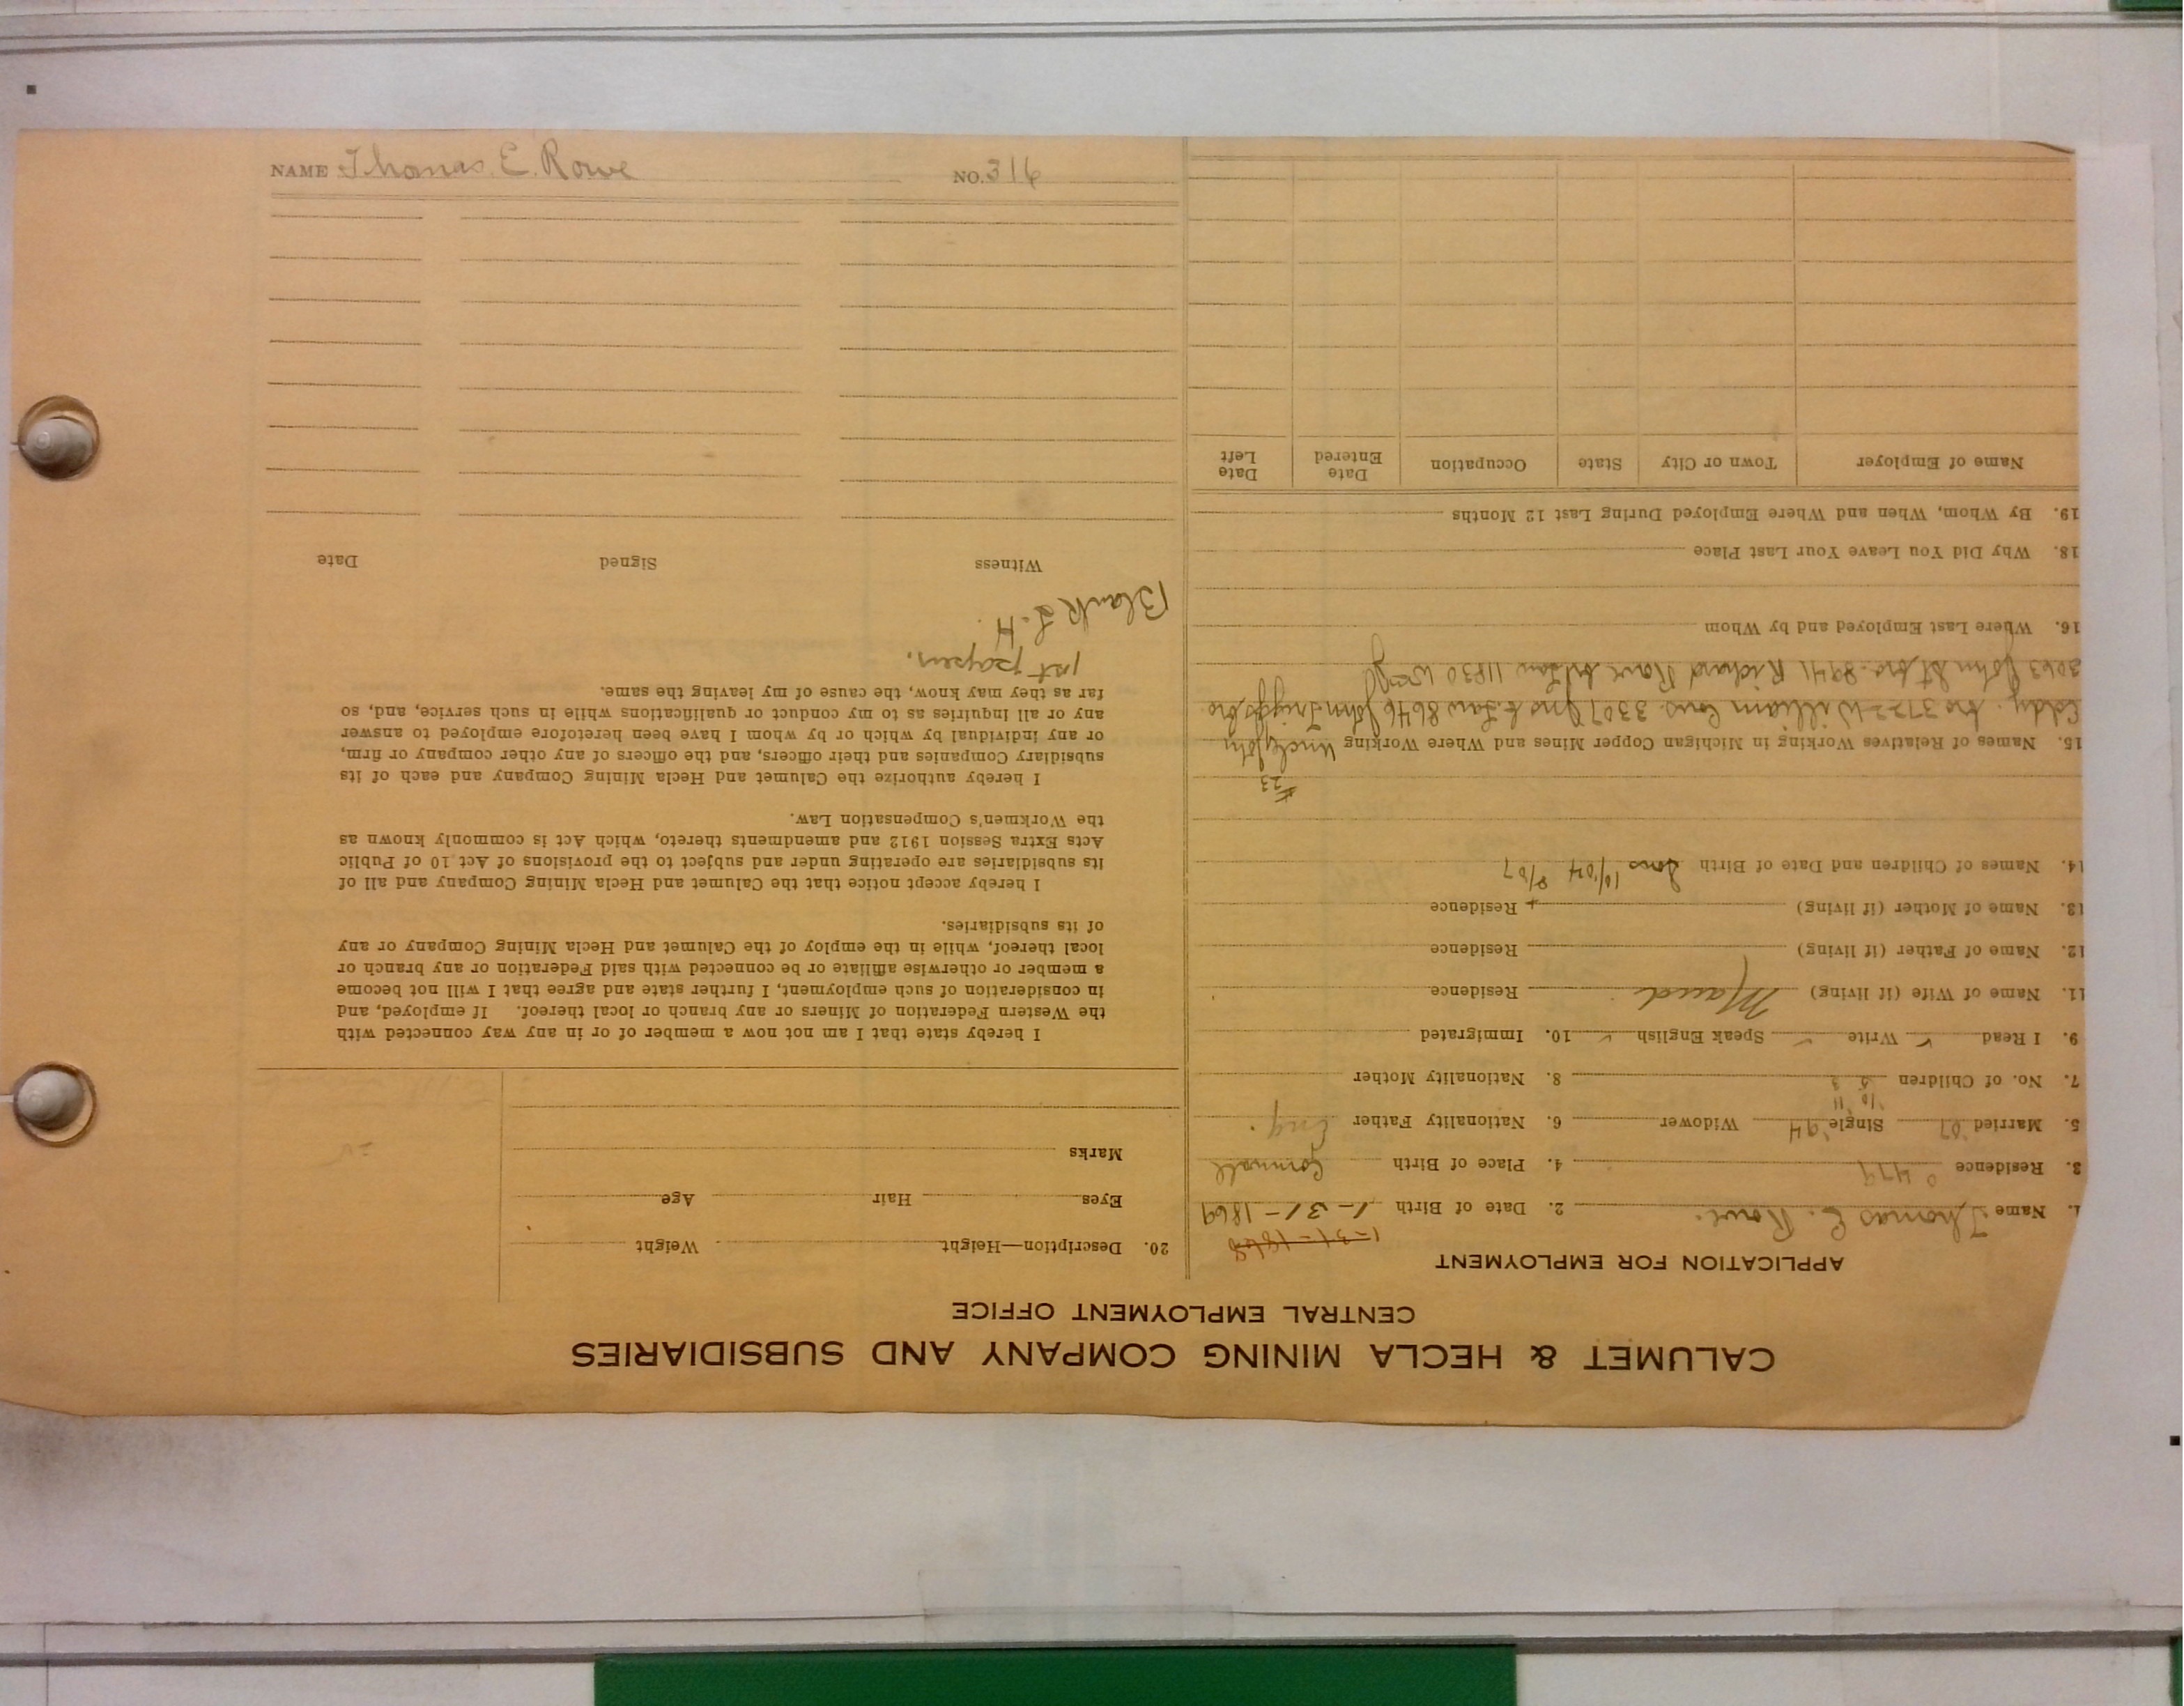 CALUMET & HECLA MINING COMPANY AND SUBSIDIARIES
CENTRAL EMPLOYMENT OFFICE
APPLICATION FOR EMPLOYMENT
1-31-1868
1. Name Thomas E. Rowe. 2. Date of Birth 1-31-1869
3. Residence 479 4. Place of Birth Cornwall
5. Married '07 Single '94 Widower 6. Nationality Father Eng.
10 11
7. No. of Children 5 3 8. Nationality Mother
9. I Read ✓ Write ✓ Speak English ✓ 10. Immigrated
11. Name of Wife (if living) Maud Residence
12. Name of Father (if living) Residence
13. Name of Mother (if living) Residence
14. Names of Children and Date of Birth Sons 10/04 8/07
#23
15. Names of Relatives Working in Michigan Copper Mines and Where Working Uncle John
Eddy. No 3722 William 3307 8646 John Triggs No
3063 John No. 8941 Richard Rowe 11830
16. Where Last Employed and by Whom
18. Why Did You Leave Your Last Place
19. By Whom, When and Where Employed During Last 12 Months
Name of Employer Town or City State Occupation Date Entered Date Left
20. Description—Height Weight
Eyes Hair Age
Marks
I hereby state that I am not now a member of or in any way connected with
the Western Federation of Miners or any branch or local thereof. If employed, and
in consideration of such employment, I further state and agree that I will not become
a member or otherwise affiliate or be connected with said Federation or any branch or
local thereof, while in the employ of the Calumet and Hecla Mining Company or any
of its subsidiaries.
I hereby accept notice that the Calumet and Hecla Mining Company and all of
its subsidiaries are operating under and subject to the provisions of Act 10 of Public
Acts Extra Session 1912 and amendments thereto, which Act is commonly known as
the Workmen's Compensation Law.
I hereby authorize the Calumet and Hecla Mining Company and each of its
subsidiary Companies and their officers, and the officers of any other company or firm,
or any individual by which or by whom I have been heretofore employed to answer
any or all inquiries as to my conduct or qualifications while in such service, and, so
far as they may know, the cause of my leaving the same.
1st papers.
Blank L.H.
Witness Signed Date
NAME Thomas. E. Rowe NO. 316